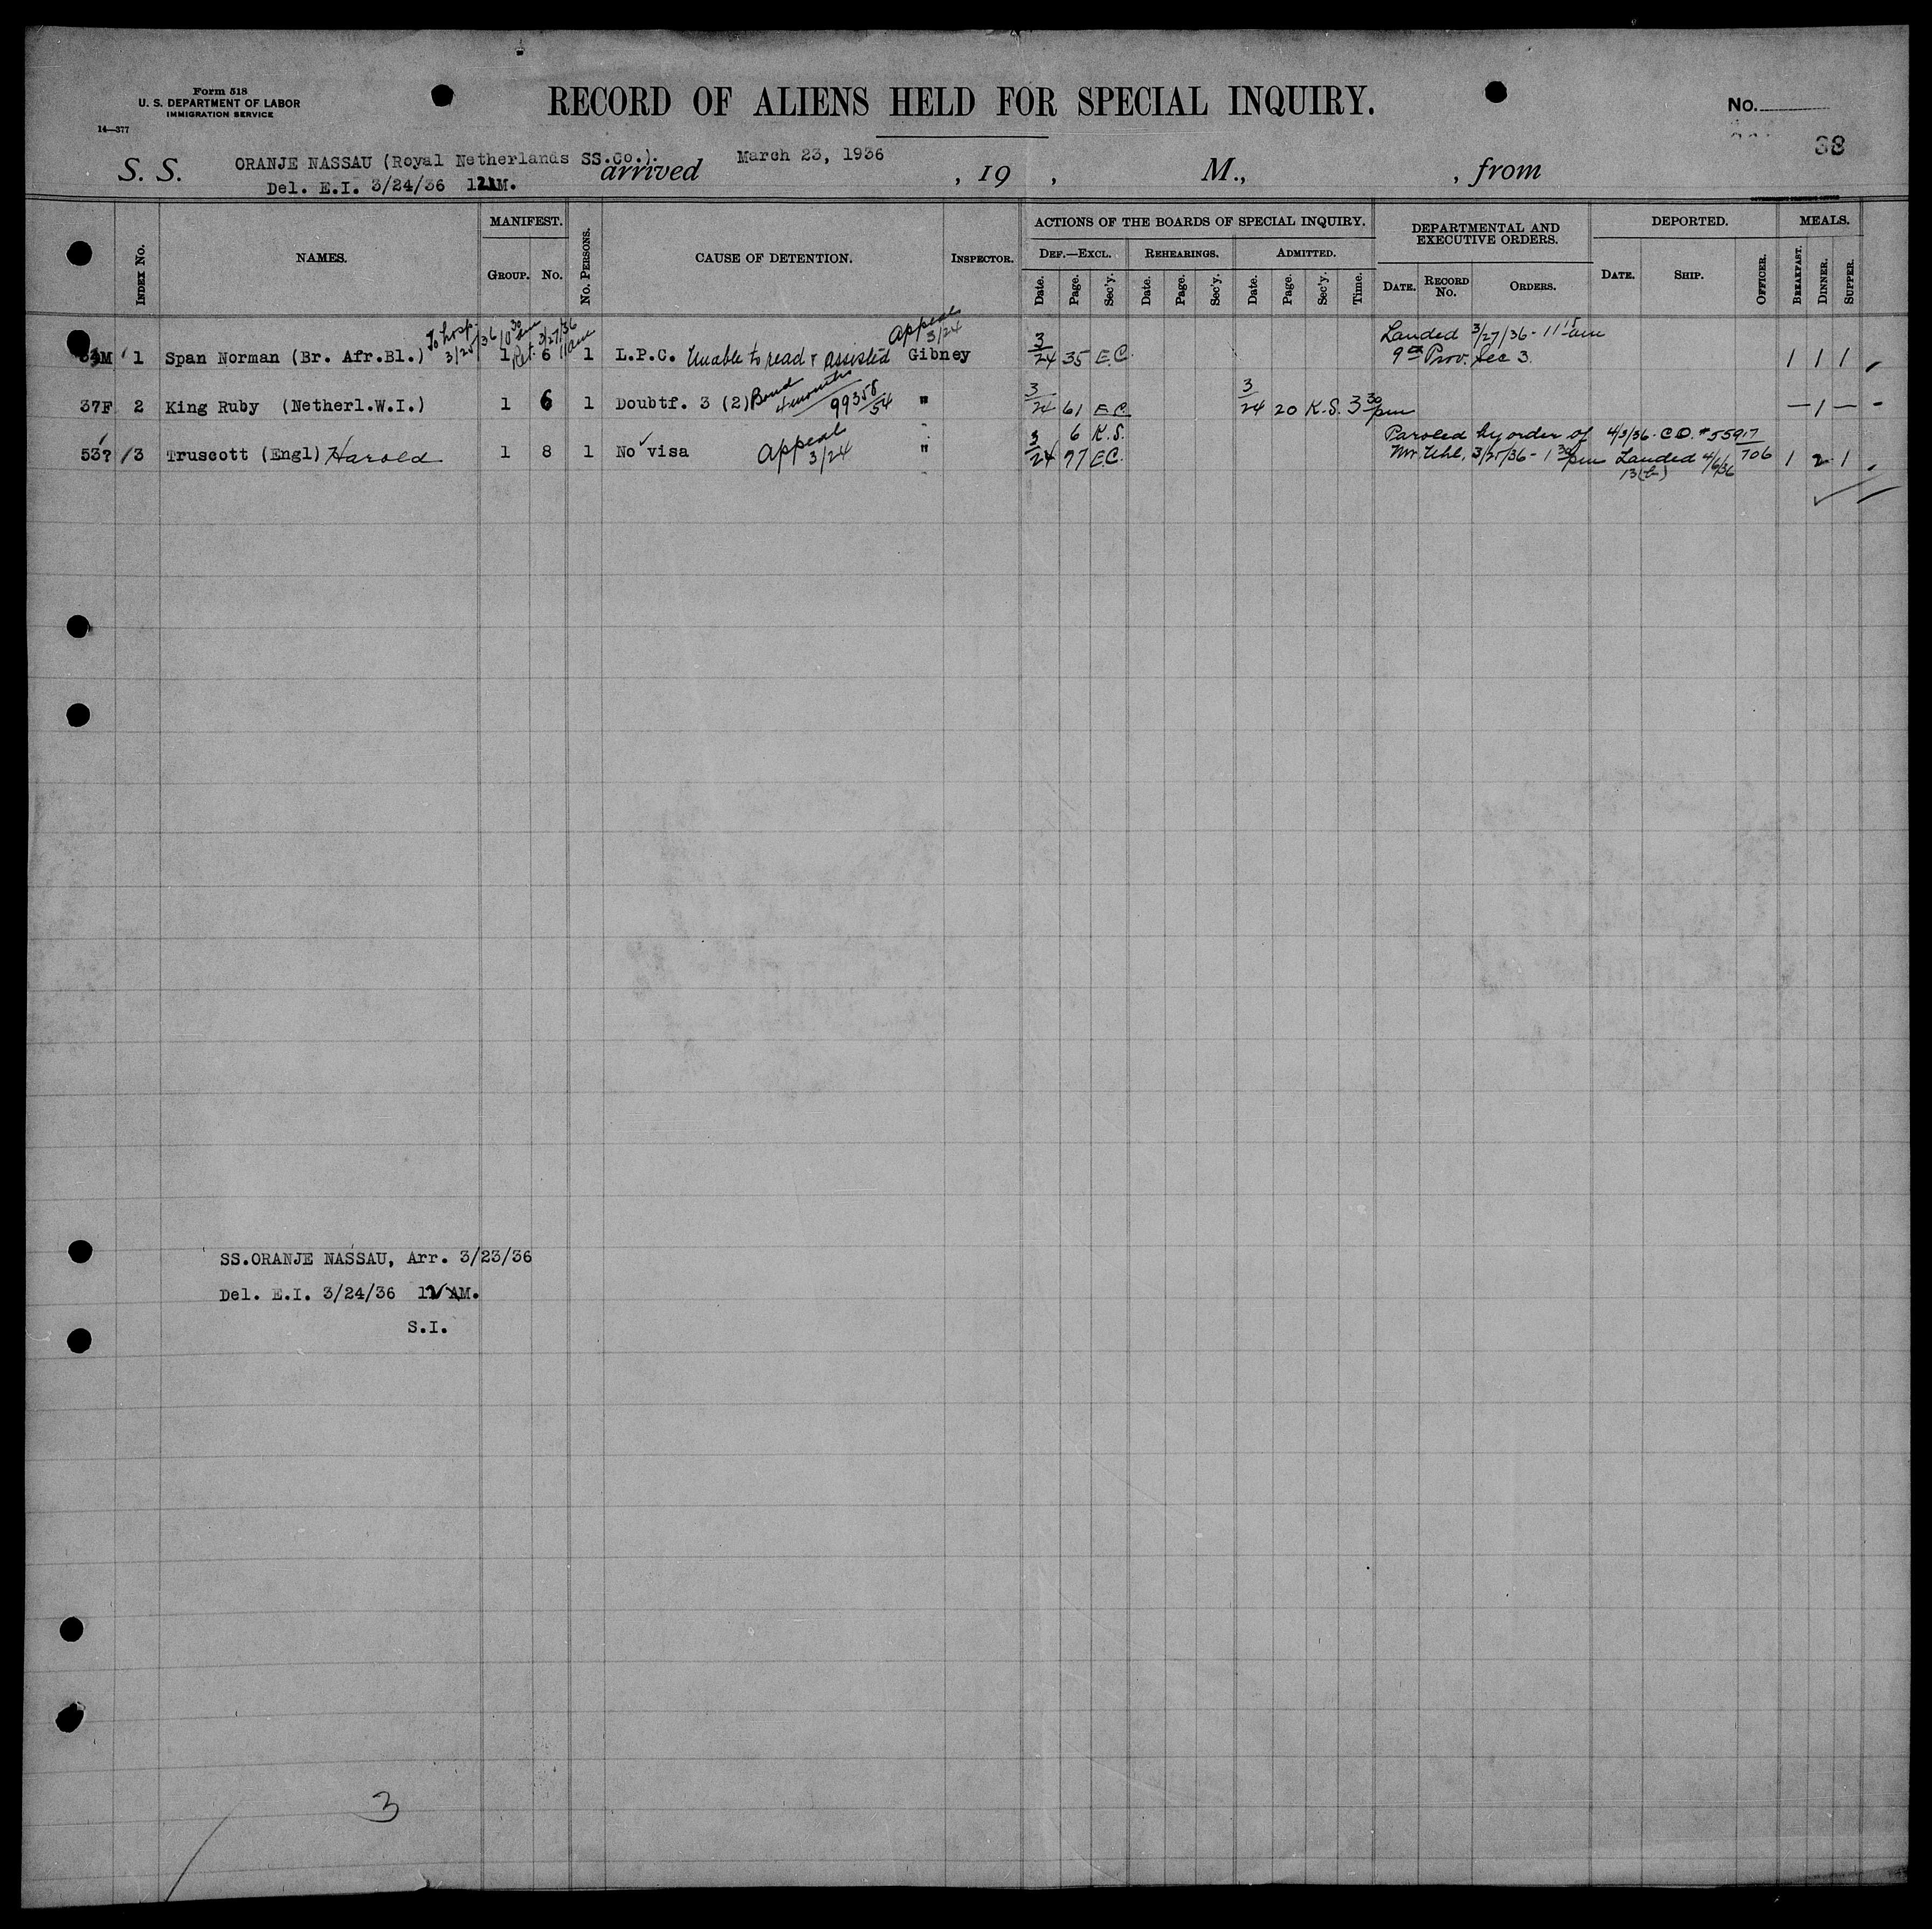 Form 518
U. S. DEPARTMENT OF LABOR
IMMIGRATION SERVICE
14—377
RECORD OF ALIENS HELD FOR SPECIAL INQUIRY.
No.
38
S. S. ORANJE NASSAU (Royal Netherlands SS.Co.). arrived March 23, 1936 , 19 , M., , from
Del. E.I. 3/24/36 12 M.
INDEX No. NAMES. MANIFEST. GROUP. No. No. PERSONS. CAUSE OF DETENTION. INSPECTOR.
ACTIONS OF THE BOARDS OF SPECIAL INQUIRY. DEF.—EXCL. Date. Page. Sec'y. REHEARINGS. Date. Page. Sec'y. ADMITTED. Date. Page. Sec'y. Time.
DEPARTMENTAL AND EXECUTIVE ORDERS. DATE. RECORD No. ORDERS.
DEPORTED. DATE. SHIP. OFFICER.
MEALS. BREAKFAST. DINNER. SUPPER.
To hosp. 3/25/36 10 30 am Ret. 3/27/36 11 am
Appeal 3/24
Landed 3/27/36 - 11 15 am
M 1 Span Norman (Br. Afr.Bl.) 1 6 1 L.P.C. Unable to read & assisted Gibney 3/24 35 E.C. 9th Prov. Sec 3. 1 1 1
37F 2 King Ruby (Netherl.W.I.) 1 6 1 Doubtf. 3 (2) Bond 4 months 99358/54 " 3/24 61 E.C. 3/24 20 K.S. 3 30 pm — 1 — -
6 K.S. Paroled by order of 4/3/36. C.O. #55917/706
53? 3 Truscott (Engl) Harold 1 8 1 No visa Appeal 3/24 " 3/24 97 E.C. Mr. Uhl, 3/25/36 - 1 30 pm Landed 4/6/36 1 2 1
13(b)
SS.ORANJE NASSAU, Arr. 3/23/36
Del. E.I. 3/24/36 12 M.
S.I.
3